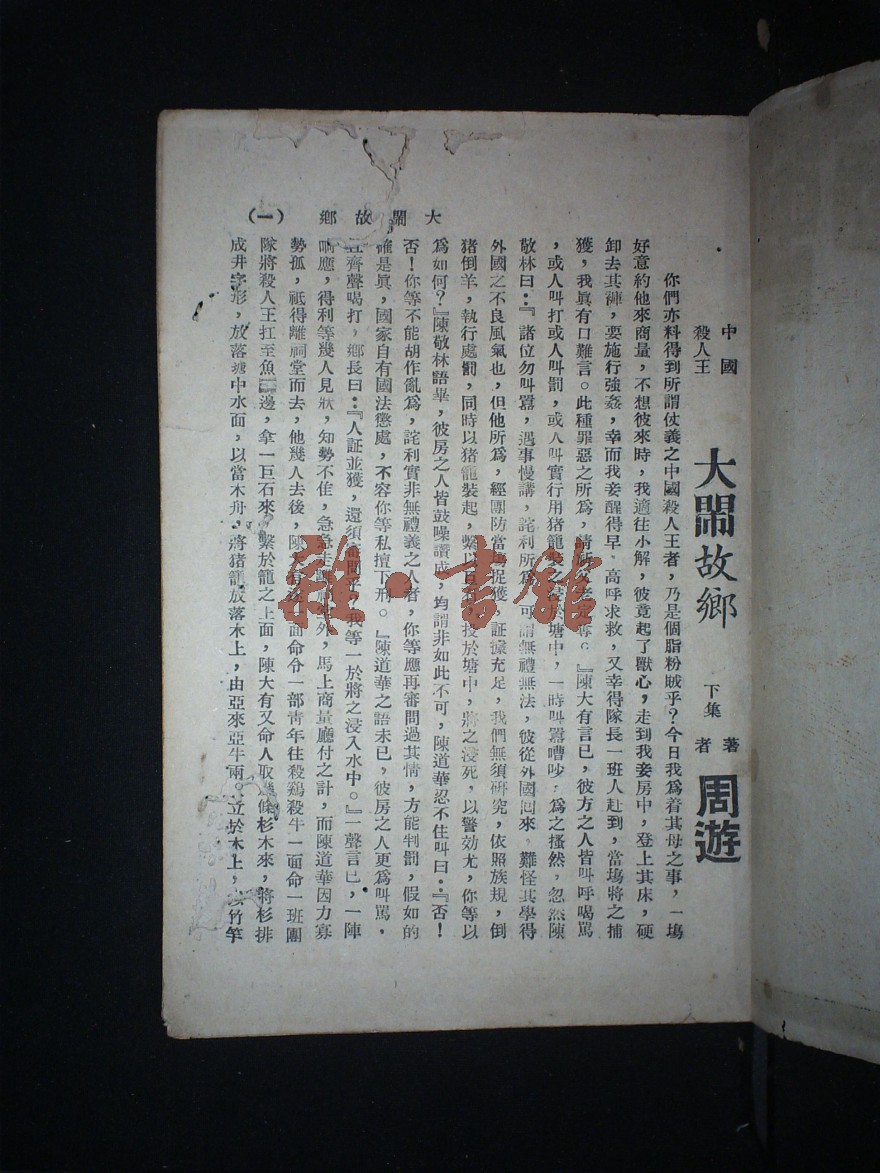 中國
殺人王
大閙故鄉
下集
著
者
周遊
你們亦料得到所謂仗義之中國殺人王者，乃是個脂粉賊乎？今日我為着其母之事，一塲
好意約他來商量，不想彼來時，我適往小解，彼竟起了獸心，走到我妾房中，登上其床，硬
卸去其褲，要施行強姦，幸而我妾醒得早，高呼求救，又幸得隊長一班人赶到，當塲將之捕
獲，我眞有口難言。此種罪惡之所為，請　　老定奪。』陳大有言已，彼方之人皆叫呼喝罵
，或人叫打或人叫罰，或人叫實行用猪籠裝之　於塘中，一時叫囂嘈吵，為之搔然，忽然陳
敬林曰：『諸位勿叫囂，遇事慢講，詫利所為，可謂無禮無法，彼從外國囘來，難怪其學得
外國之不良風氣也，但他所為，經團防當塲捉獲，証據充足，我們無須研究，依照族規，倒
猪倒羊，執行處罰，同時以猪籠裝起，繫以　　，投於塘中，將之浸死，以警効尤，你等以
為如何？』陳敬林語畢，彼房之人皆鼓噪讚成，均謂非如此不可，陳道華忍不住叫曰：『否！
否！你等不能胡作亂為，詫利實非無禮義之人者，你等應再審問過其情，方能判罰，假如的
確是眞，國家自有國法懲處，不容你等私擅下刑。』陳道華之語未已，彼房之人更為叫罵，
　齊聲喝打，鄉長曰：『人証並獲，還須審問乎，我等一於將之浸入水中。』一聲言已，一陣
响應，得利等幾人見狀，知勢不佳，急急走　　外，馬上商量應付之計，而陳道華因力寡
勢孤，祇得離祠堂而去，他幾人去後，陳大有　面命令一部靑年往殺鷄殺牛一面命一班團
隊將殺人王扛至魚　邊，拿一巨石來，繫於籠之上面，陳大有又命人取　條杉木來，將杉排
成井字形，放落塘中水面，以當木舟，將猪籠放落木上，由亞來亞牛兩　立於木上，　竹竿
大閙故鄉　（一）
雜·書館